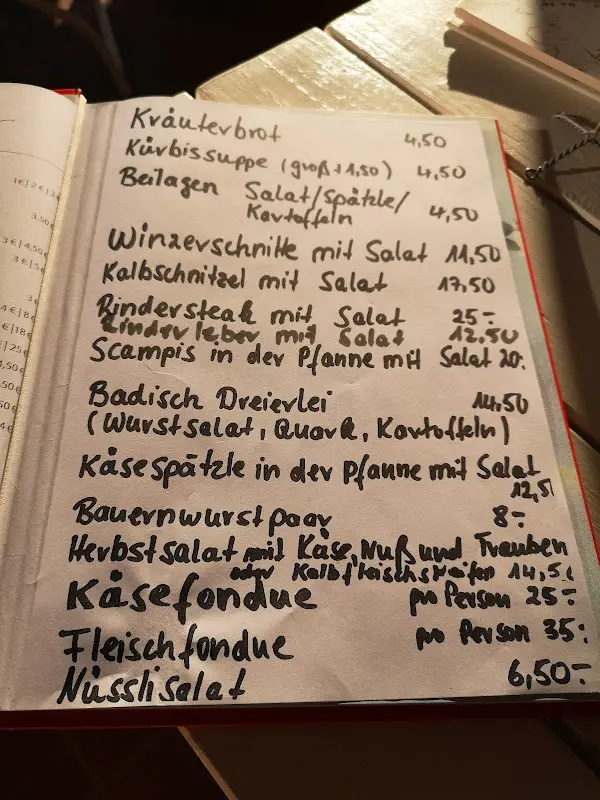 Kräuterbrot 4,50
Kürbissuppe (groß +1,50) 4,50
Beilagen Salat/Spätzle/
Kartoffeln 4,50
Winzerschnitte mit Salat 11,50
Kalbschnitzel mit Salat 17,50
Rindersteak mit Salat 25:-
Rinderleber mit Salat 12,50
Scampis in der Pfanne mit Salat 20:
Badisch Dreierlei 14,50
(Wurstsalat, Quark, Kartoffeln)
Käsespätzle in der Pfanne mit Salat
12,5
Bauernwurstpaar 8:-
Herbstsalat mit Käse, Nuß und Trauben
oder Kalbfleischstreifen 14,50
Käsefondue pro Person 25:-
Fleischfondue pro Person 35:
Nüsslisalat 6,50:-
1€|2€|3
3,50
3€|4,50
3€|5
3€
4€|8
€|18
€|25
,50€
,50
50€
4€